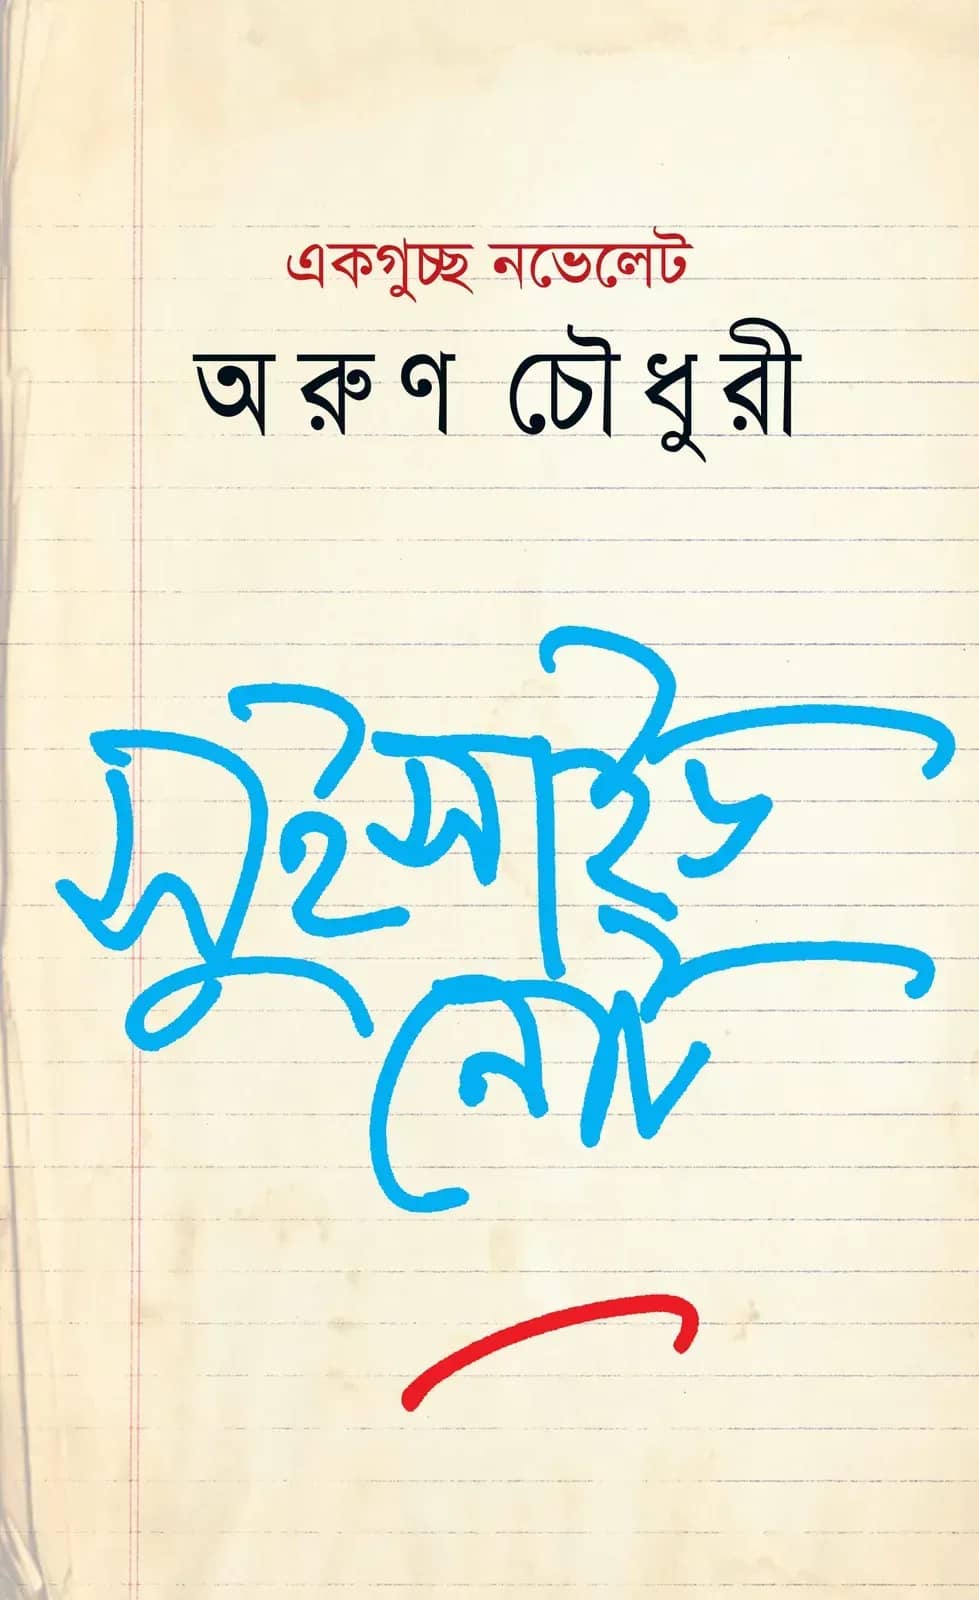 একগুচ্ছ নভেলেট
অরুণ চৌধুরী
সুইসাইড
নোট